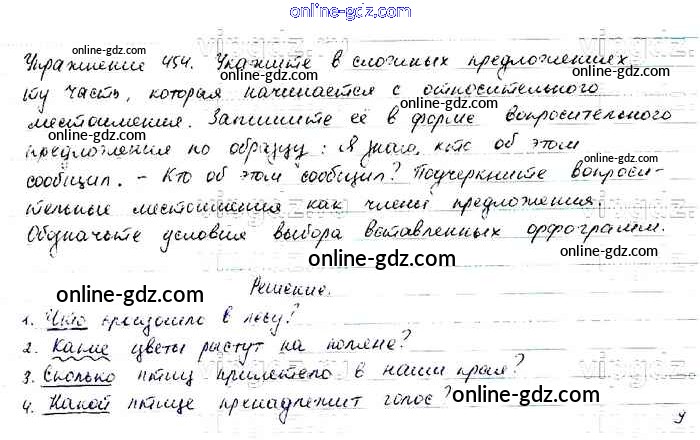 online-gdz.com
Упражнение 454. Укажите в сложных предложениях
online-gdz.com
online-gdz.com
ту часть, которая начинается с относительного
местоимения. Запишите её в форме вопросительного
предложения по образцу: Я знаю, кто об этом
online-gdz.com
сообщил. - Кто об этом сообщил? Подчеркните вопроси-
тельные местоимения как члены предложения.
Обозначьте условия выбора вставленных орфограмм.
online-gdz.com
online-gdz.com
Решение.
online-gdz.com
1. Что произошло в лесу?
2. Какие цветы растут на поляне?
3. Сколько птиц прилетело в наши края?
online-gdz.com
online-gdz.com
4. Какой птице принадлежит голос?
9